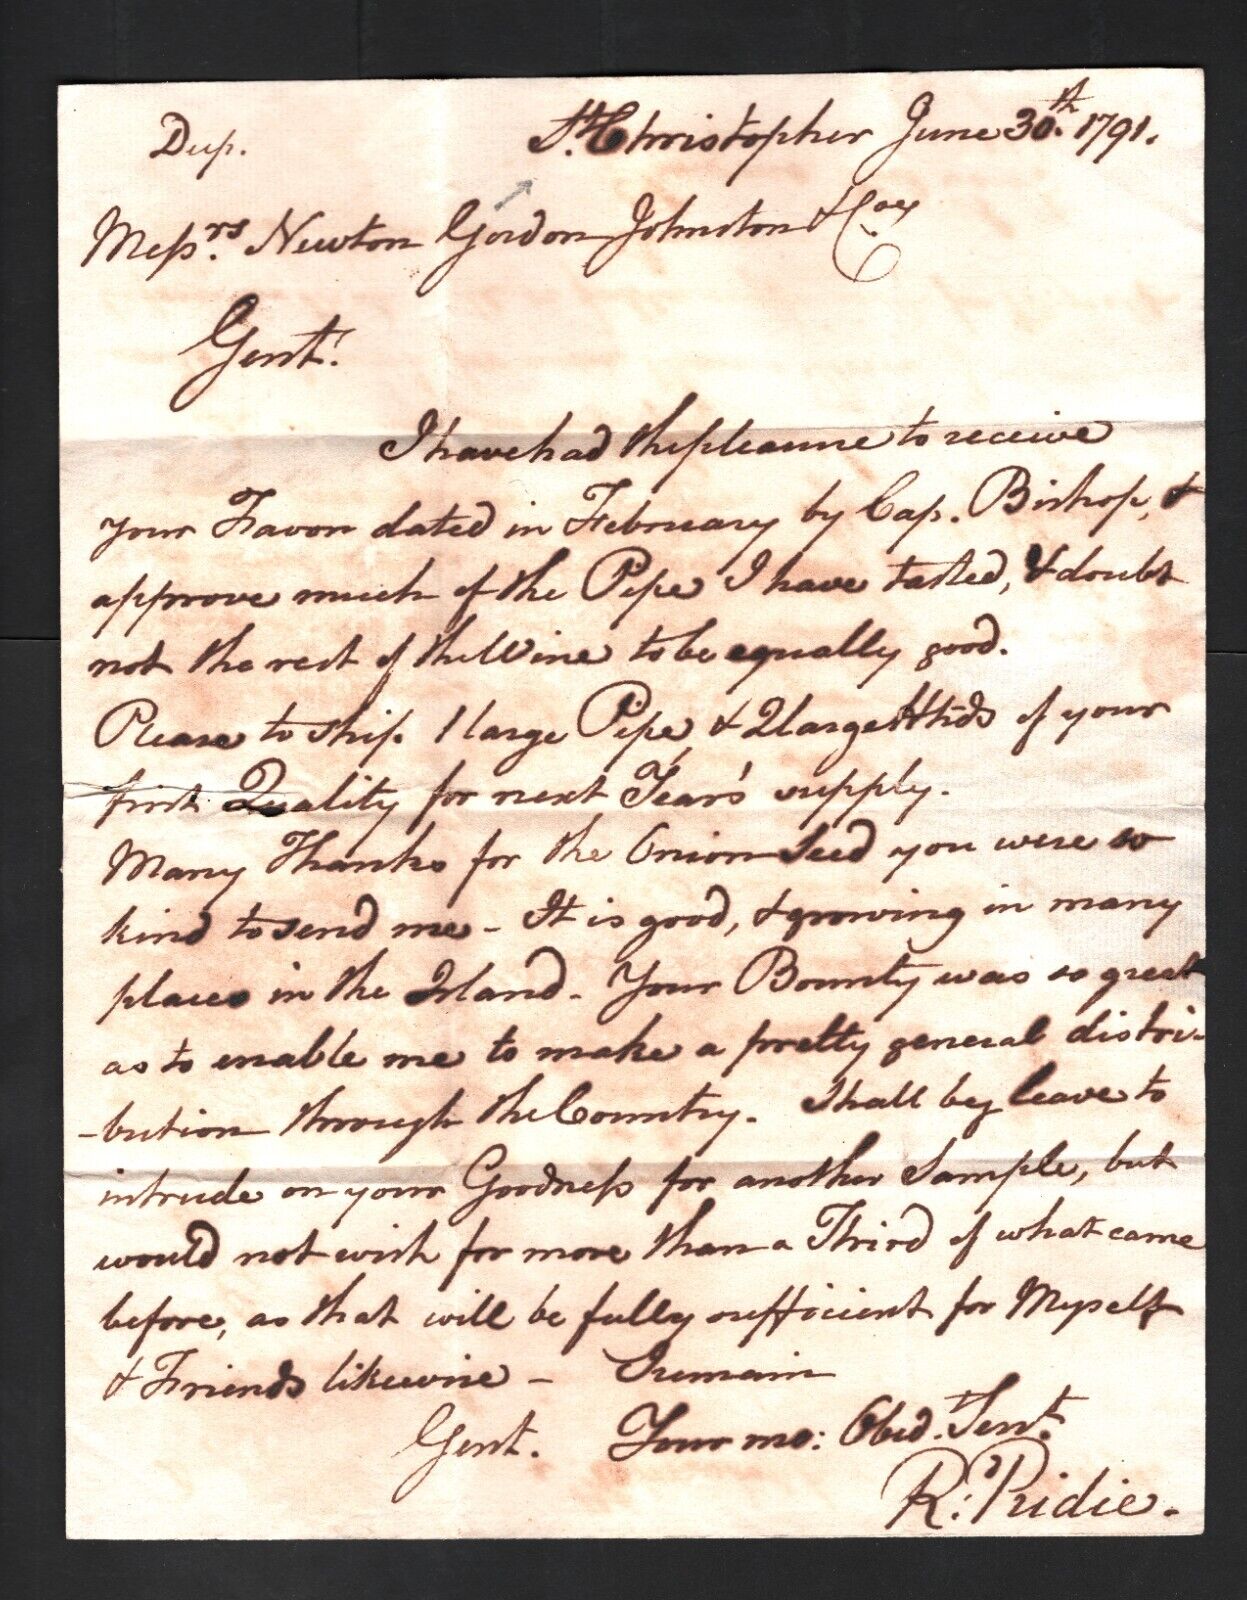 Dup.
St. Christopher June 30.th 1791.
Messrs. Newton Gordon Johnston & Coy.
Gent.
I have had the pleasure to receive
your Favor dated in February by Cap. Bishop, &
approve much of the Pipe I have tasted, & doubt
not the rest of the Wine to be equally good.
Please to ship 1 large Pipe, & 2 large Hhds of your
first Quality for next Year's supply.
Many Thanks for the Onion Seed you were so
kind to send me - It is good, & growing in many
places in the Island - Your Bounty was so great
as to enable me to make a pretty general distri-
-bution through the Country. I shall beg leave to
intrude on your Goodness for another Sample, but
would not wish for more than a Third of what came
before, as that will be fully sufficient for Myself
& Friends likewise - I remain
Gent. Your mo: Obed. Sert.
Rd: Pridie.